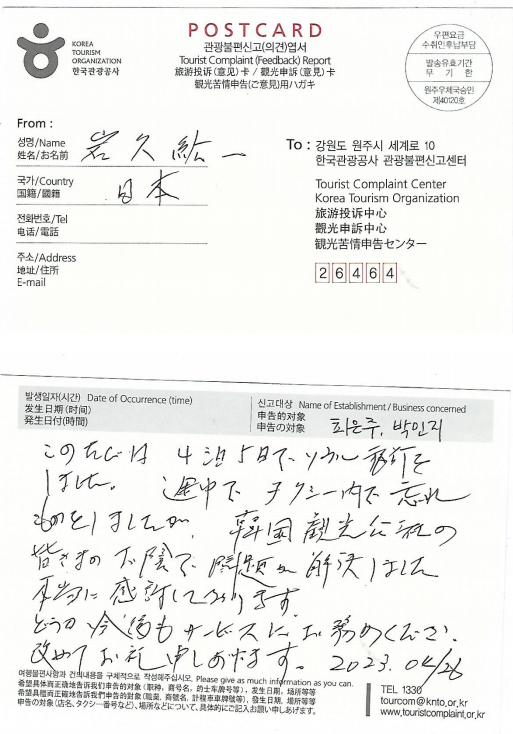 KOREA
TOURISM
ORGANIZATION
한국관광공사
POSTCARD
관광불편신고(의견)엽서
Tourist Complaint (Feedback) Report
旅游投诉(意见)卡 / 觀光申訴(意見)卡
観光苦情申告(ご意見)用ハガキ
우편요금
수취인후납부담
발송유효기간
무 기 한
원주우체국승인
제40120호
From :
성명/Name
姓名/お名前
岩 久 紘 一
국가/Country
国籍/國籍
日本
전화번호/Tel
电话/電話
주소/Address
地址/住所
E-mail
To : 강원도 원주시 세계로 10
한국관광공사 관광불편신고센터
Tourist Complaint Center
Korea Tourism Organization
旅游投诉中心
觀光申訴中心
観光苦情申告センター
26464
발생일자(시간) Date of Occurrence (time)
发生日期(时间)
発生日付(時間)
신고대상 Name of Establishment / Business concerned
申告的对象
申告の対象
최은주, 박인지
このたびは 4泊5日でソウル旅行を
しました。 途中でタクシー内で忘れ
ものをしましたが、韓国観光公社の
皆さまのお陰で問題が解決しました
本当に感謝しております。
どうか今後もサービスにお務めください。
改めてお礼申しあげます。 2023.04/26
여행불편사항과 건의내용을 구체적으로 작성해주십시오. Please give as much information as you can.
希望具体而正确地告诉我们申告的对象(职种, 商号名, 的士车牌号等), 发生日期, 场所等等
希望具體而正確地告訴我們申告的對象(職業, 商號名, 計程車車牌號等), 發生日期, 場所等等
申告の対象(店名、タクシー番号など)、場所などについて、具体的にご記入お願い申しあげます。
TEL 1330
tourcom@knto.or.kr
www.touristcomplaint.or.kr